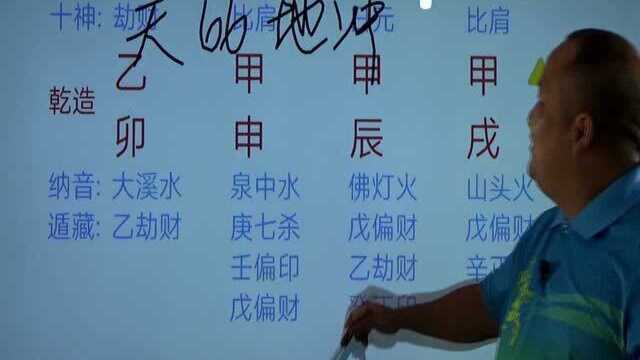 天比地冲
十神: 劫财 比肩 日元 比肩
乙 甲 甲 甲
乾造
卯 申 辰 戌
纳音: 大溪水 泉中水 佛灯火 山头火
遁藏: 乙劫财 庚七杀 戊偏财 戊偏财
壬偏印 乙劫财 辛正
戊偏财 癸正印